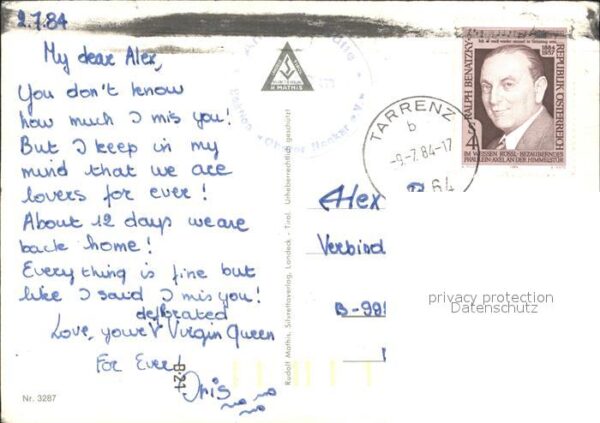 2.7.84
My dear Alex,
You don't know
how much I mis you!
But I keep in my
mind that we are
lovers for ever!
About 12 days we are
back home!
Every thing is fine but
like I said I mis you!
deflorated
Love, your Virgin Queen
For Ever!
Iris
Nr. 3287
B-21
R. MATHIS
Rudolf Mathis, Silvrettaverlag, Landeck - Tirol. Urheberrechtlich geschützt
TARRENZ
b
-9.-7.84-17
64
RALPH BENATZKY
1884
1957
REPUBLIK ÖSTERREICH
S 4
IM WEISSEN RÖSSL·BEZAUBERNDES
FRÄULEIN·AXEL AN DER HIMMELSTÜR
Alex
Verbind
B-991
privacy protection
Datenschutz